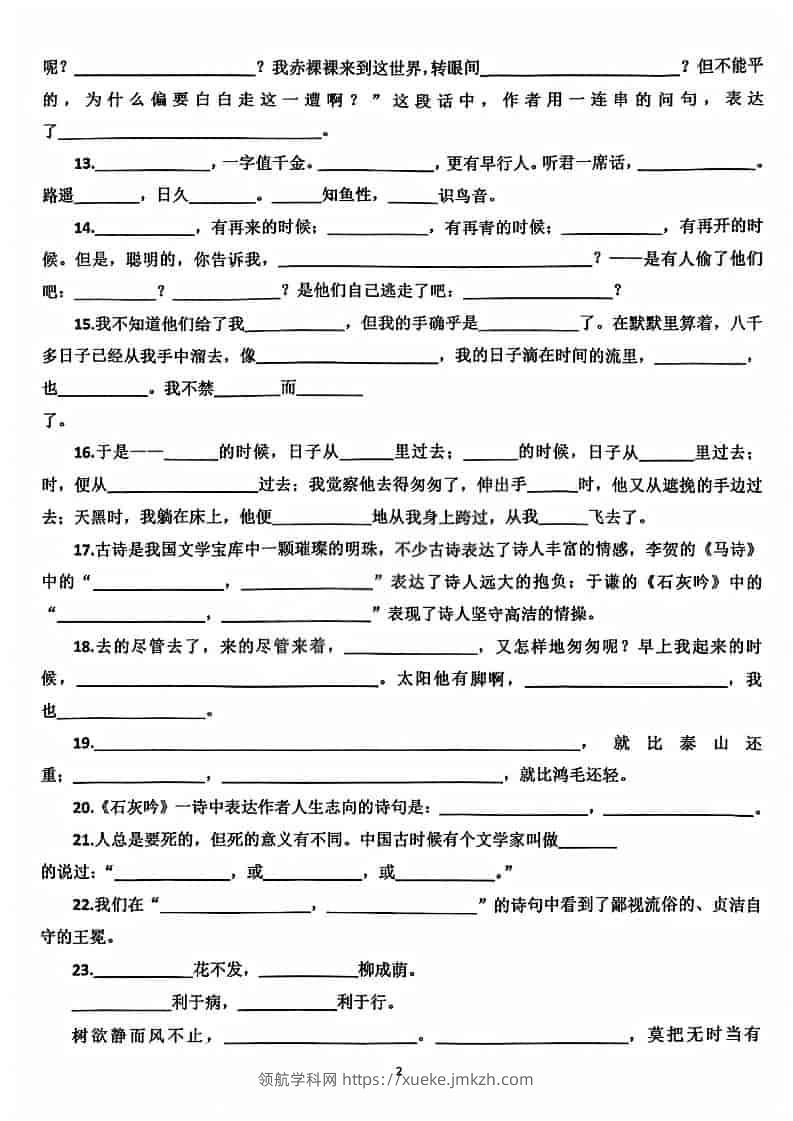 呢？____________________？我赤裸裸来到这世界，转眼间______________________？但不能平
的，为什么偏要白白走这一遭啊？”这段话中，作者用一连串的问句，表达
了_____________________________。
13._____________，一字值千金。_____________，更有早行人。听君一席话，_____________。
路遥_______，日久_______。______知鱼性，______识鸟音。
14.___________，有再来的时候；___________，有再青的时候；___________，有再开的时
候。但是，聪明的，你告诉我，___________________________________？——是有人偷了他们
吧：_________？____________？是他们自己逃走了吧：________________？
15.我不知道他们给了我___________，但我的手确乎是___________了。在默默里算着，八千
多日子已经从我手中溜去，像____________________，我的日子滴在时间的流里，__________，
也__________。我不禁_______而_______
了。
16.于是——______的时候，日子从______里过去；______的时候，日子从______里过去；
时，便从_________________过去；我觉察他去得匆匆了，伸出手______时，他又从遮挽的手边过
去；天黑时，我躺在床上，他便___________地从我身上跨过，从我______飞去了。
17.古诗是我国文学宝库中一颗璀璨的明珠，不少古诗表达了诗人丰富的情感，李贺的《马诗》
中的“______________，______________”表达了诗人远大的抱负；于谦的《石灰吟》中的
“________________，________________”表现了诗人坚守高洁的情操。
18.去的尽管去了，来的尽管来着，_______________，又怎样地匆匆呢？早上我起来的时
候，_________________________________。太阳他有脚啊，______________________，我
也________________。
19.______________________________________________________，就比泰山还
重；______________，____________________________，就比鸿毛还轻。
20.《石灰吟》一诗中表达作者人生志向的诗句是：________________，________________。
21.人总是要死的，但死的意义有不同。中国古时候有个文学家叫做______
的说过：“_____________，或___________，或___________。”
22.我们在“________________，________________”的诗句中看到了鄙视流俗的、贞洁自
守的王冕。
23.___________花不发，___________柳成荫。
___________利于病，___________利于行。
树欲静而风不止，_____________________。_____________________，莫把无时当有
2
领航学科网 https://xueke.jmkzh.com